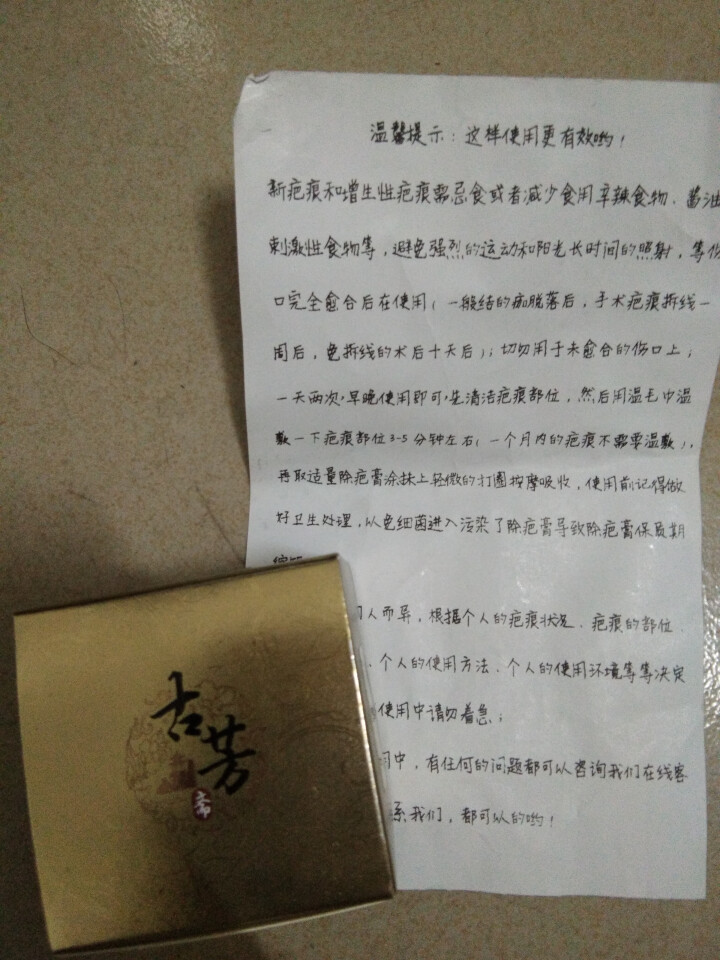 温馨提示：这样使用更有效哟！
新疤痕和增生性疤痕需忌食或者减少食用辛辣食物、酱油
刺激性食物等，避免强烈的运动和阳光长时间的照射，等伤
口完全愈合后在使用（一般结的痂脱落后，手术疤痕拆线一
周后，免拆线的术后十天后）；切勿用于未愈合的伤口上；
一天两次，早晚使用即可，先清洁疤痕部位，然后用温毛巾温
敷一下疤痕部位3-5分钟左右（一个月内的疤痕不需要温敷），
再取适量除疤膏涂抹上轻微的打圈按摩吸收，使用前记得做
好卫生处理，以免细菌进入污染了除疤膏导致除疤膏保质期
人而异，根据个人的疤痕状况、疤痕的部位、
、个人的使用方法、个人的使用环境等等决定
使用中请勿着急；
用中，有任何的问题都可以咨询我们在线客
系我们，都可以的哟！
古芳
斋